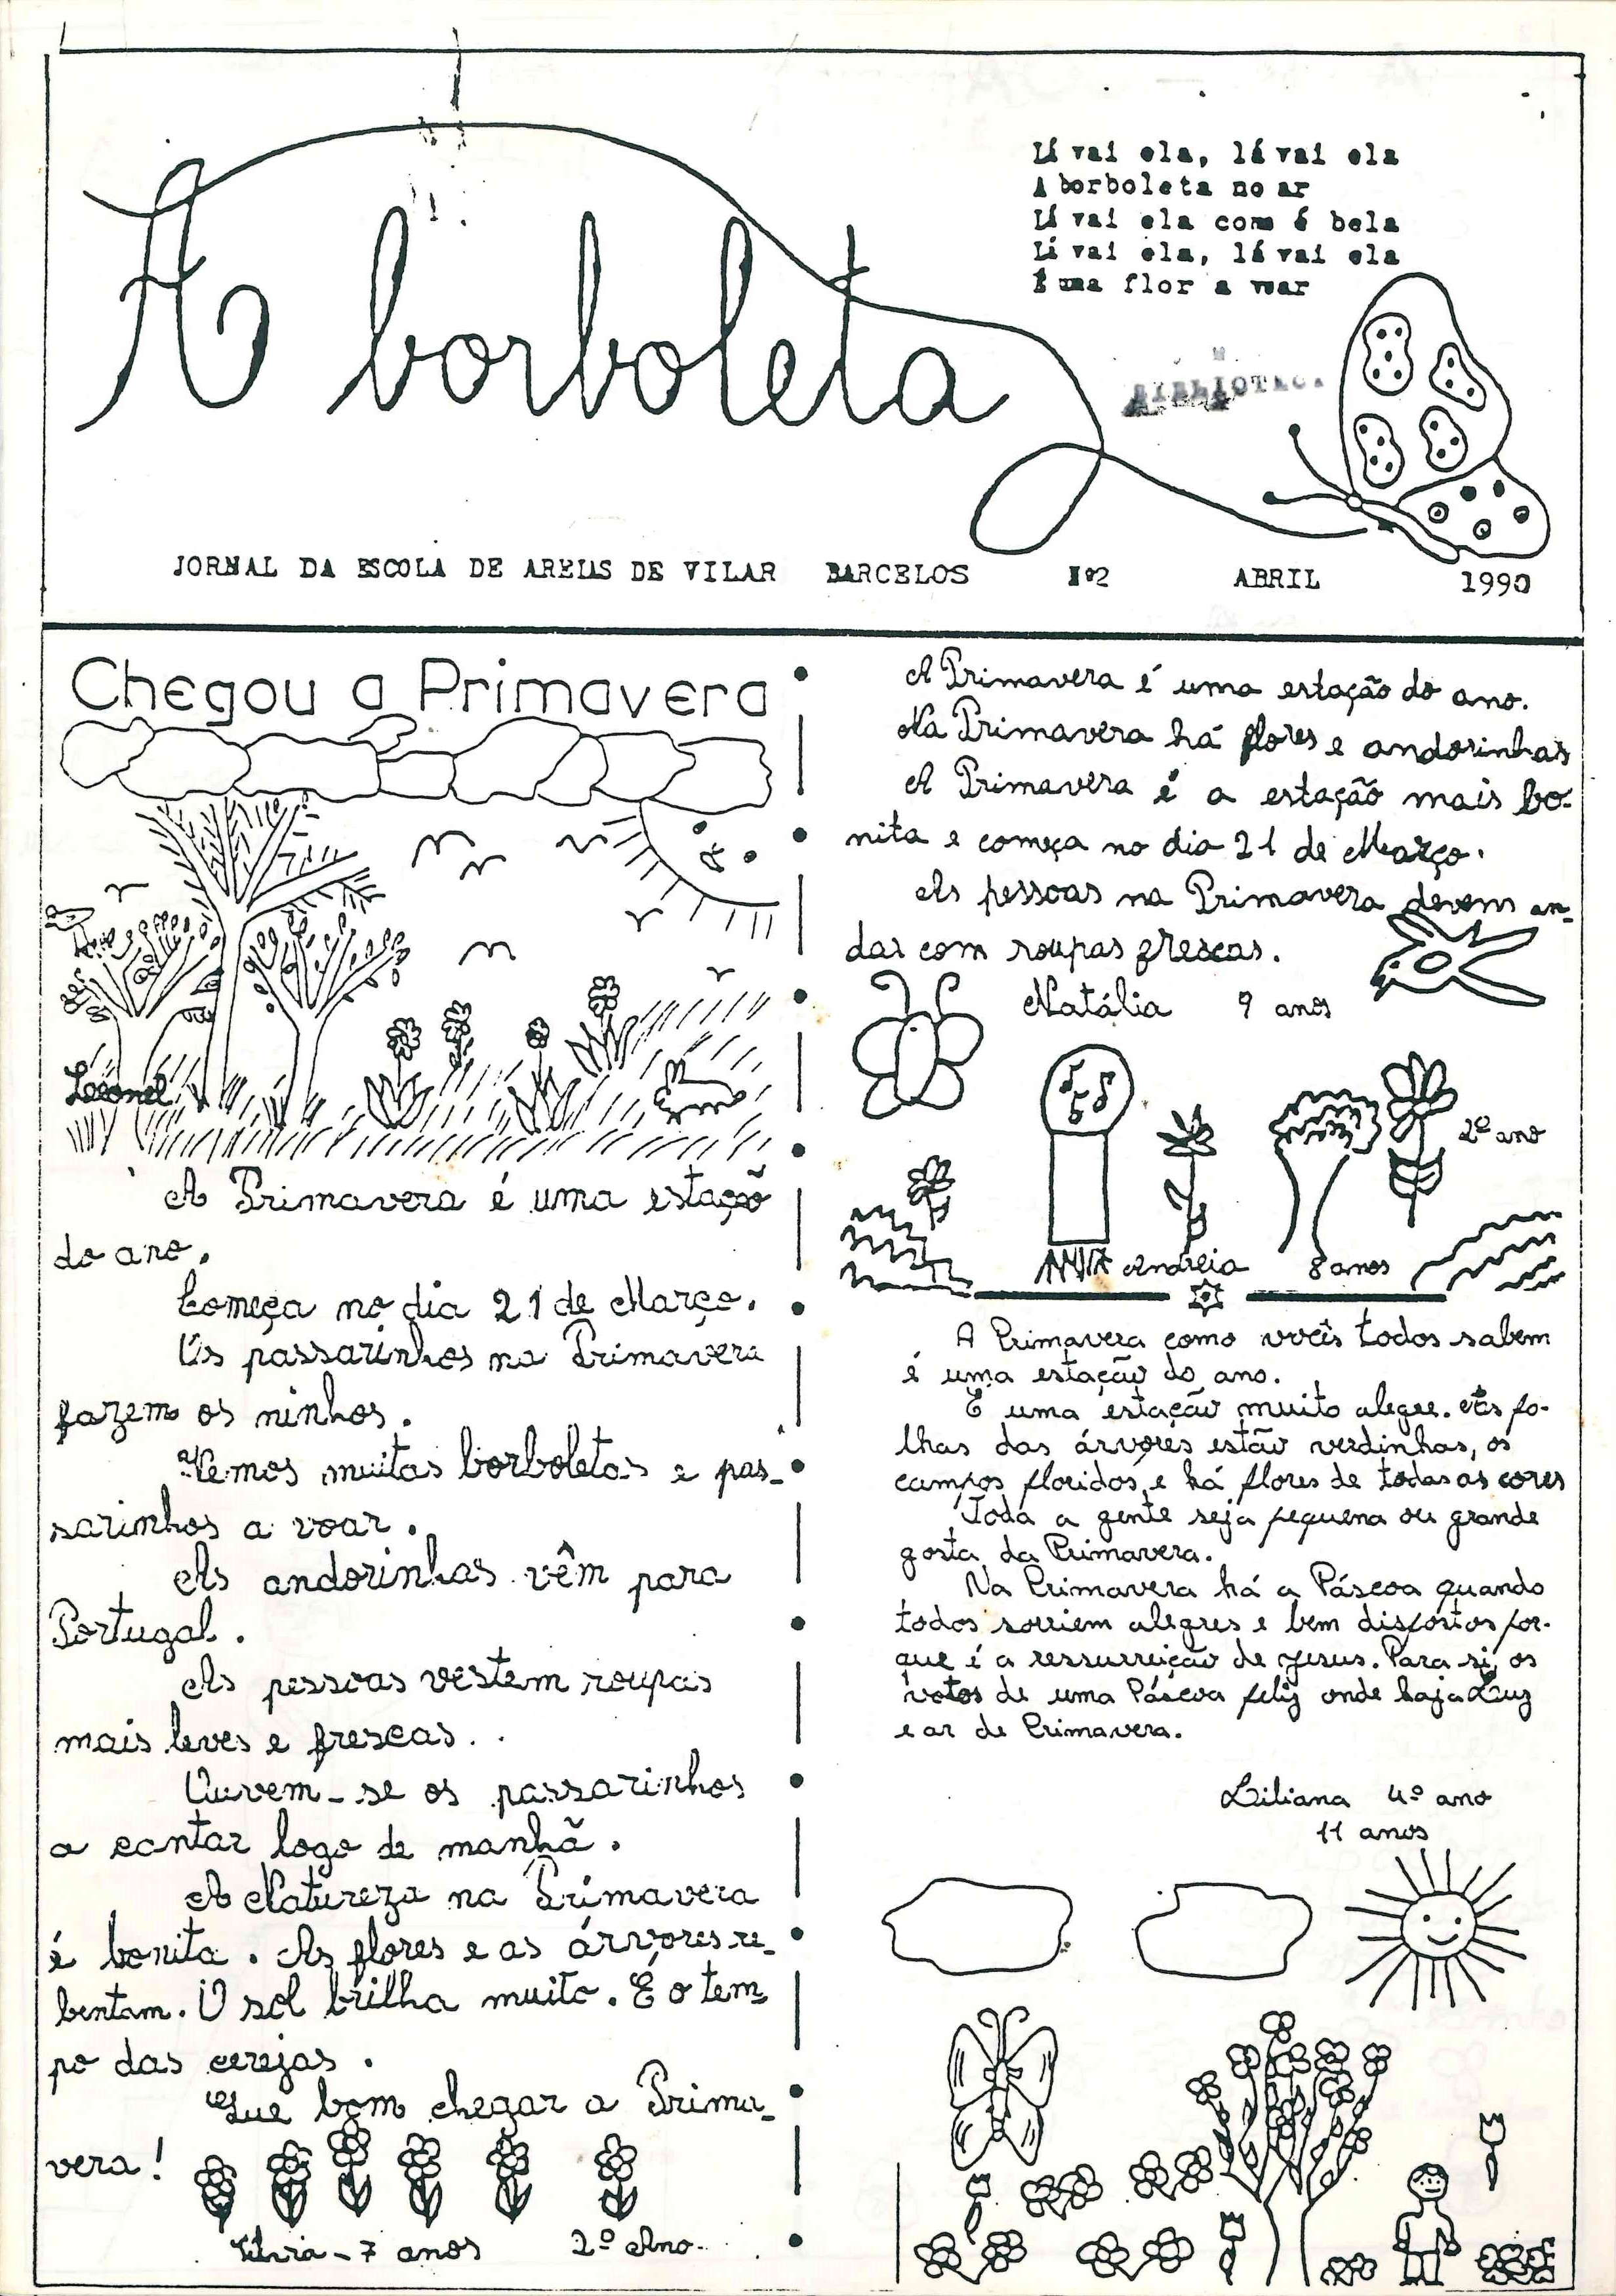 A borboleta
Lá vai ela, lá vai ela
A borboleta no ar
Lá vai ela com é bela
Lá vai ela, lá vai ela
É uma flor a voar
BIBLIOTECA
JORNAL DA ESCOLA DE AREIAS DE VILAR BARCELOS Nº2 ABRIL 1990
Chegou a Primavera
Leonel
A Primavera é uma estação
do ano.
Começa no dia 21 de Março.
Os passarinhos na Primavera
fazem os ninhos.
Vemos muitas borboletas e pas-
sarinhos a voar.
As andorinhas vêm para
Portugal.
As pessoas vestem roupas
mais leves e frescas.
Ouvem-se os passarinhos
a cantar logo de manhã.
A Natureza na Primavera
é bonita. As flores e as árvores re-
bentam. O sol brilha muito. É o tem-
po das cerejas.
Que bom chegar a Prima-
vera!
7 anos 2º Ano
A Primavera é uma estação do ano.
Na Primavera há flores e andorinhas
A Primavera é a estação mais bo-
nita e começa no dia 21 de Março.
As pessoas na Primavera devem an-
dar com roupas frescas.
Natália 9 anos
2º ano
Andreia 8 anos
A Primavera como vocês todos sabem
é uma estação do ano.
É uma estação muito alegre. As fo-
lhas das árvores estão verdinhas, os
campos floridos e há flores de todas as cores
Toda a gente seja pequena ou grande
gosta da Primavera.
Na Primavera há a Páscoa quando
todos sorriem alegres e bem dispostos por-
que é a ressurreição de Jesus. Para si, os
votos de uma Páscoa feliz onde haja Luz
e ar de Primavera.
Liliana 4º ano
11 anos